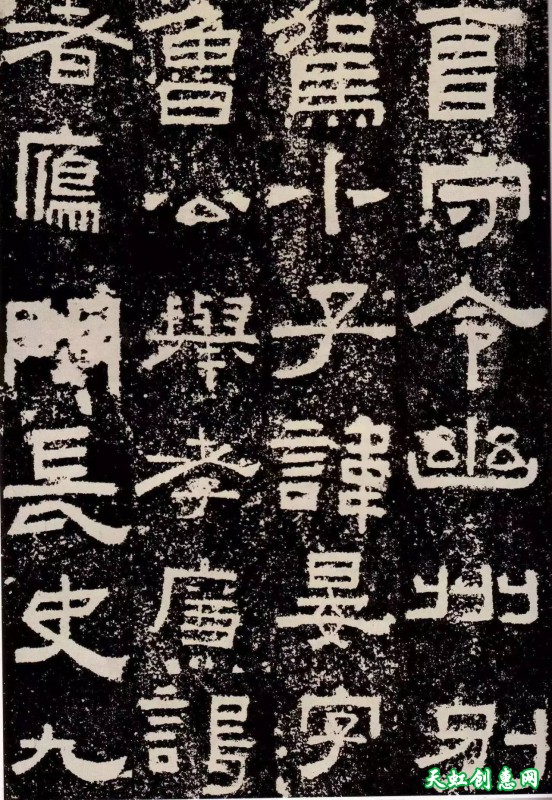 守令幽州別
駕小子諱晏字
魯公舉孝廉謁
者鴈門長史九
天虹创惠网